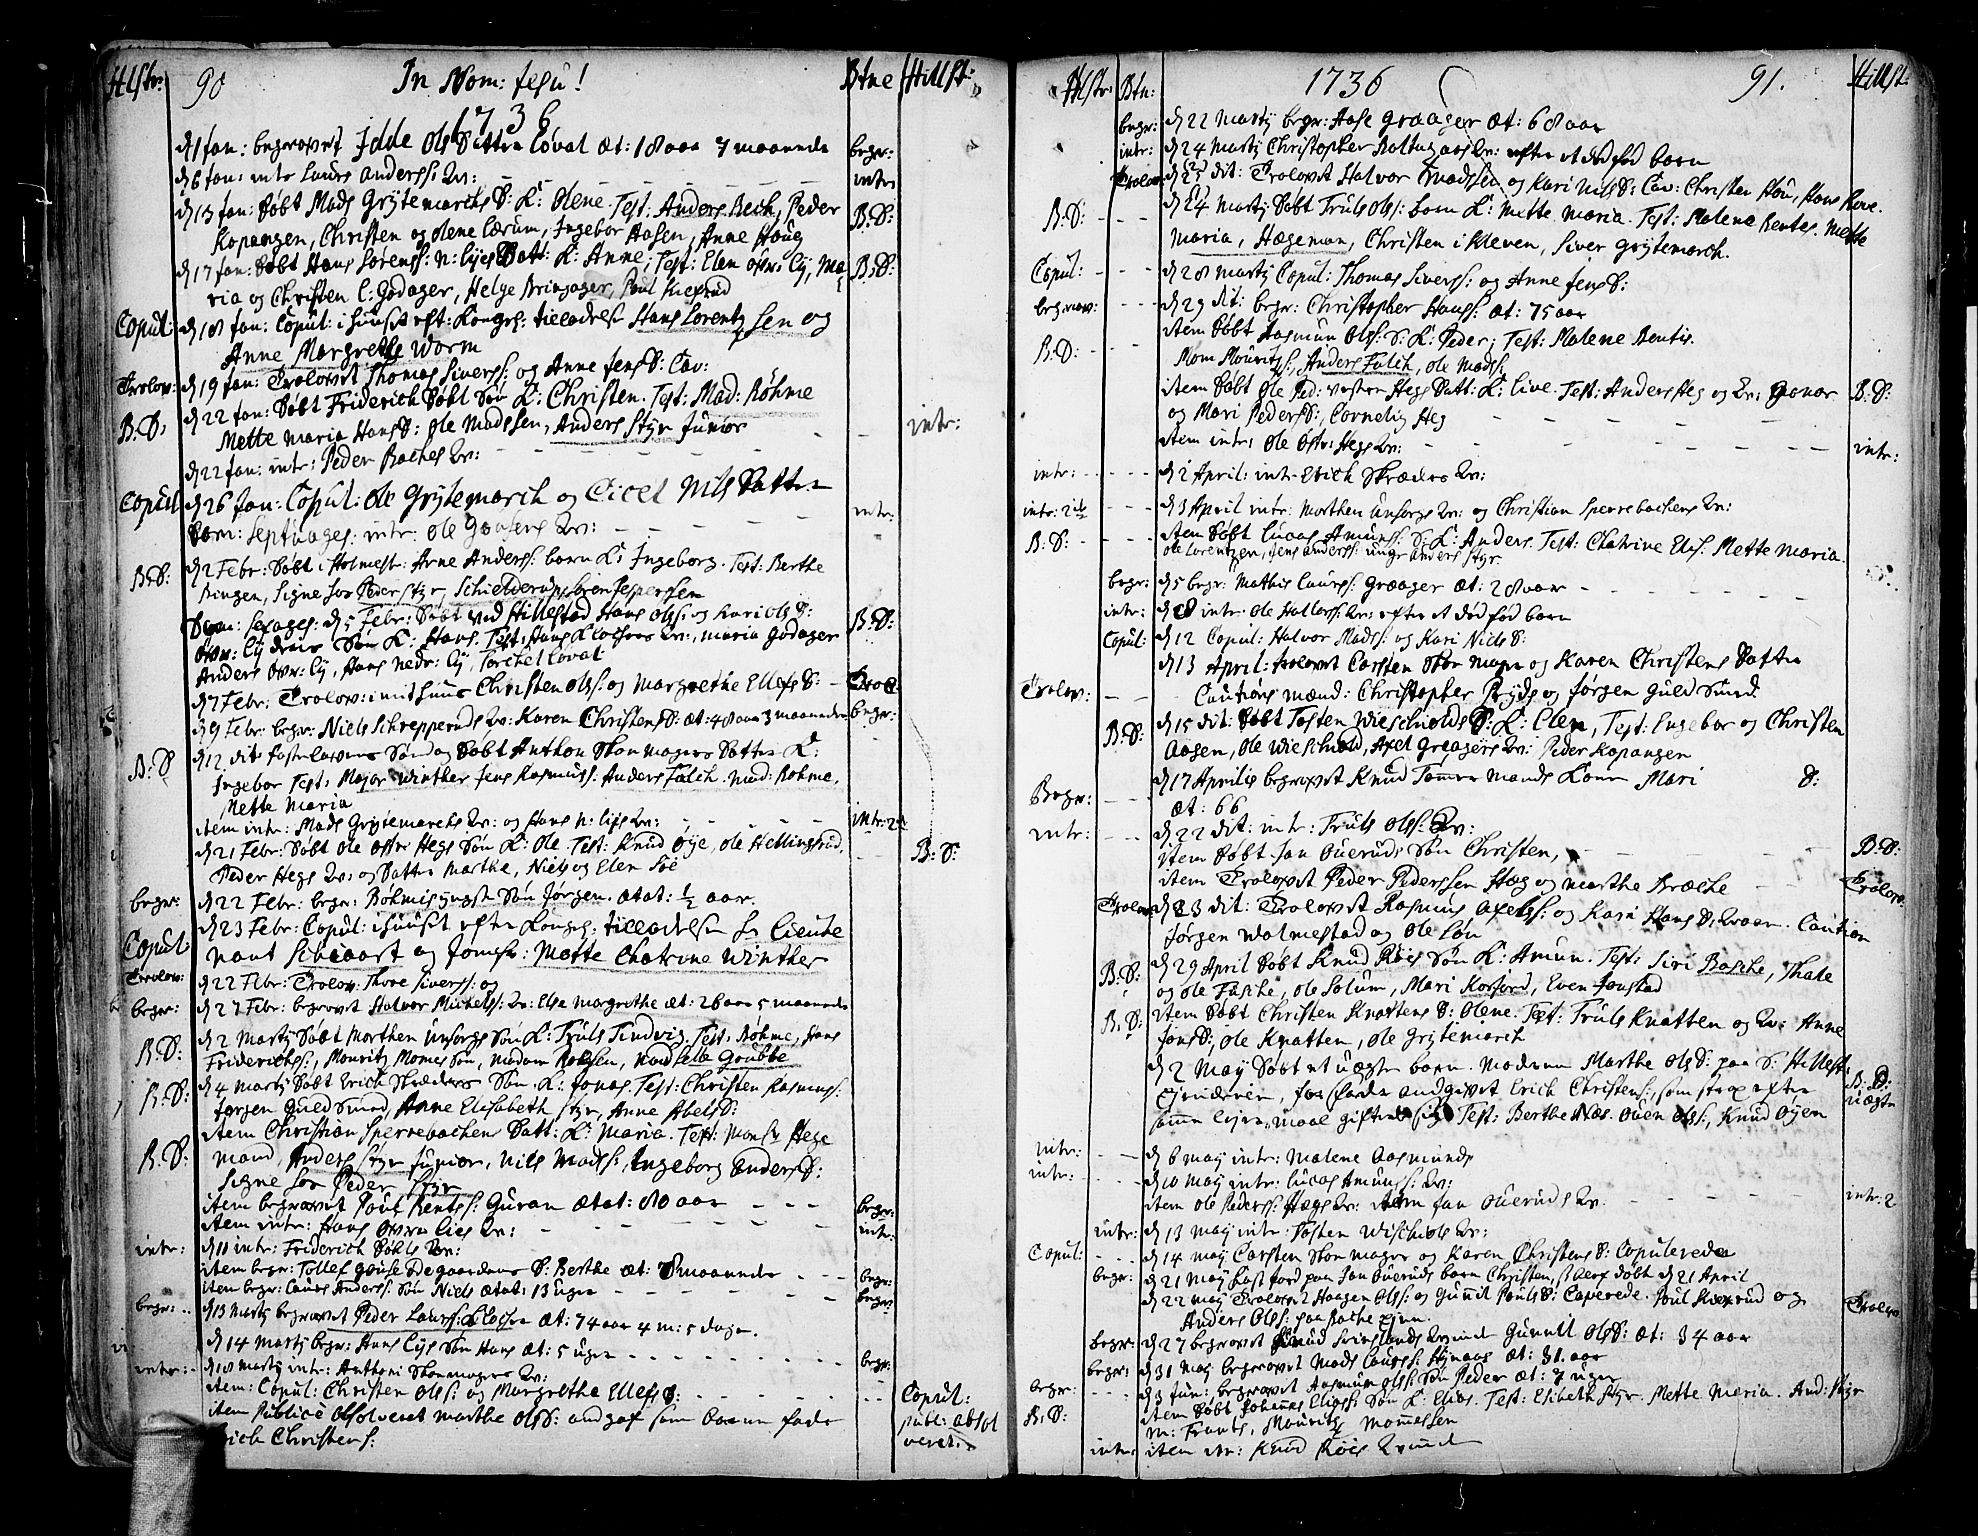 Hlstr: 90 In Nom: Jesu! Btne Hillst:
1736
d 1 Jan: begravet Idde Ols Datter Løval æt: 18 aar 7 maaneder begr:
d 6 Jan: intr Laurs Anderss: Qv: intr
d 13 Jan: døbt Mads Grytemarchs D: K: Olene. Test: Anders Bech, Peder B: D:
Kopangen, Christen og Olene Lærum, Ingebor Aasen, Anne Houg
d 17 Jan: døbt Hans Sørenss: n: Lyes Datt: K: Anne, Test: Elen Ovr: Ly, Ma B: D:
ria og Christen C: Godager, Helge Bringager, Poul Kiexrud
Copul: d 18 Jan: Copul: i huuset eft: Kongel: tilladelse Hans Lorentzsen og
Anne Margrethe Worm
Trolov: d 19 Jan: Trolovet Thomas Siverss: og Anne Jens D: Cav:
B: D: d 22 Jan: døbt Friderich Døbl Søn K: Christen. Test: Mad: Röhme
Mette Maria Hans D: Ole Madssen, Anders Styr Junior
d 22 Jan: intr: Peder Baches Qv: intr:
Copul d 26 Jan: Copul: Ole Grytemarch og Cicel Nils Datter
Dom: Septuages: intr: Ole Qv: intr:
B: D: d 2 Febr: døbt i Holmest: Arne Anderss: barn K: Ingeborg. Test: Berthe
Bingen, Signe Peder Styr, Schielderup, Soren Jespersen
Dom: Sexages: d 5 Febr: døbt ved Hillestad Hans Olss: og Kari Ols D: B: D:
Ovr: Ly Søn K: Hans. Test: Hans Klochers Qv:, Maria Godager
Anders Ovr: Ly, Hans nedr: Ly, Torchel Løval
d 7 Febr: Trolov: i mit huus Christen Olss: og Margrethe Ellefs D: Trol:
d 9 Febr: begr: Niels Schrepperuds Qv: Karen Christens D: æt: 48 aar 3 maaneder begr:
B: D d 12 dit: Fastelavens Søndag døbt Anthon Skomagers Datter K:
Ingebor Test: Major Winther Jens Rasmuss: Anders Falch. Mad: Röhme,
Mette Maria
item intr: Mads Grytemarchs Qv: og Hans n: Lyes Qv: intr: 2
d 21 Febr: døbt Ole Østr Hegs Søn K: Ole. Test: Knud Øye, Ole Hellingsrud, B: D:
Peder Hegs Qv: og Datter Marthe, Niels og Elen Foe
begr: d 22 Febr: begr: Röhmis yngste Søn Jørgen. ætat: ½ aar.
Copul d 23 Febr: Copul: i huuset efter Kongel: tilladelse Hr Lieute
nant og Jomfr: Mette Chatrine Winther
Trolov: d 22 Febr: Trolov: Thore Siverss: og
begr: d 27 Febr: begravet Halvor Michelss: Qv: Else Margrethe æt: 26 aar 5 maaneder
B: D: d 2 Martj døbt Morthen Unsorgs Søn K: Truls Tindvig. Test: Röhme, Hans
Friderichss:, Mouritz Momes Søn, Madam Röhsen, Madselle Grubbe
B: D: d 4 Martj døbt Erich Skræders Søn K: Jonas. Test: Christen Rasmuss:
Jørgen Guldsmed, Anne Elisabeth Styr, Anne Abels D:
item Christian Sperrebachens Datt: K: Maria. Test: Monsr Hege
B: D: mand, Anders Styr Junior, Nils Madss:, Ingeborg Anders D:
Signe Peder Styr
item begravet Poul Bentss: Guran ætat: 80 aar begr:
item intr: Hans Ovren Lies Qv: intr:
intr: d 11 intr: Friderich Døbls Qv:
item begr: Tollef Gouse Degaardens D: Berthe æt: 8 maaneder begr:
item begr: Laurs Anderss: Søn Niels ætat: 13 uger begr:
begr: d 13 Martj begravet Peder Laurss: Klocher æt: 74 aar 4 m: 5 dage.
d 14 Martj begr: Hans Lyes Søn Hans æt: 5 uger begr:
intr: d 18 Martj intr: Anthoni Skomagers Qv:
item: Copul: Christen Olss: og Margrethe Ellefs D: Copul:
item Publice Absolveret Marthe Ols D: andgaf som barne fader publ: absol
Erich Christens: veret.
Hlstr: Btn: 1736 91. Hillst:
begr: d 22 Martj begr: Aase Graager æt: 68 aar
intr: d 24 Martj Christopher Qv: efter et død fød barn
Trolov d 23 dit: Trolovet Halvor Madssen og Kari Nils D: Cav: Christen Hou, Hans
B: D: d 24 Martj døbt Truls Olss: barn K: Mette Maria. Test: Malene Bentes. Mette
Maria, Hægeman, Christen i Kleven, Siver Grytemarch.
Copul: d 28 Martj Copul: Thomas Siverss: og Anne Jens D:
begrav: d 29 dit: begr: Christopher Hanss: æt: 75 aar
B: D: item døbt Aasmun Olss: S: K: Peder; Test: Malene Bentis.
Mom Mouritss:, Anders Falch, Ole Madss:
item døbt Ole Ped: vester Hegs Datt: K: Live. Test: Anders Heg og Qv: Gonor B: D:
og Mari Peders D:, Cornelig Heg
item intr: Ole Østr: Hegs Qv: intr:
intr: d 2 April: intr Erich Skræders Qv:
intr: 2 d 3 April intr: Morthen Unsorgs Qv: og Christian Sperrebachens Qv:
B: D: item døbt Lucas Amunss: S: K: Anders. Test: Chatrine Elis: Mette Maria.
Ole Lorentzen, Jens Anderss: unge Anders Styr.
begr: d 5 begr: Mathis Laurss: Græager æt: 28 aar
intr: d 8 intr: Ole Hallorss: Qv: efter et død fød barn
Copul: d 12 Copul: Halvor Madss: og Kari Niels D:
d 13 April: trolovet Carsten Skomager og Karen Christens Datter
Trolov: Cautions mænd: Christopher Pryds og Jørgen Guldsmed.
B: D: d 15 dit: døbt Tosten Wiescholds D: K: Elen, Test: Engebor og Christen
Aagen, Ole Wiescholdd, Axel Greagers Qv: Peder Kopangen
Begr: d 17 Aprilis begravet Knud Tømmermands Kone Mari D:
æt: 66
intr: d 22 dit: intr: Truls Olss: Qv:
item døbt Jan Oueruds Søn Christen, B: D:
item Trolovet Peder Pederssen Hæg og Marthe Bræche Trolov:
Trolov d 23 dit: Trolovet Rasmus Axelss: og Kari Hans D: Caution
Jørgen Walmestad og Ole Løu
B: D: d 29 April døbt Knud Röes Søn K: Amun. Test: Siri Basche, Thale
og Ole Fasche, Ole Solum, Mari Korsord, Even Jonstad
B: D: item døbt Christen Knattens D: Olene. Test: Truls Knatten og Qv: Anne
Jons D:, Ole Knatten, Ole Grytemarch
d 2 May døbt et uægte barn. Moderen Marthe Ols D: paa S: Hillest: B: D:
Eyendeien, for fader andgivet Erich Christens:, som strax efter uægte
samme Leyermaal giftede sig Test: Berthe Næs. Ouen Olss:, Knud Øyen
intr: d 6 May intr: Malene Aasmunds
intr: d 10 May intr: Lucas Amunss: Qv:
item Ole Pederss: Hægs Qv: item Jan Oueruds Qv. intr: 2
intr: d 13 May intr. Tosten Wischiols Qv:
Copul: d 14 May Carsten Skomager og Karen Christens D: Copulerede
begr: d 21 May kast Jord paa Jan Oueruds barn Christen, døbt d 21 April
d 22 May Trolovet Haagen Olss: og Gunnil Pouls D: Caverede. Poul Kiexrud og Trolov:
Anders Olss: paa Bache Eyen.
begr: d 27 begravet Knud Qvinde Gunnil Ols D: æt: 34 aar
begr: d 31 May begravet Mads Laurss: æt: 31. aar
begr: d 3 Jun: begravet Aasmun Olss: Søn Peder æt: 7 uger
B: D: item døbt Johannes Eliass: Søn K: Elias. Test: Elisbeth Styr. Mette Maria. And: Styr
M: Frants, Mouritz Momessen
intr: item intr: Knud Röes Qvinde